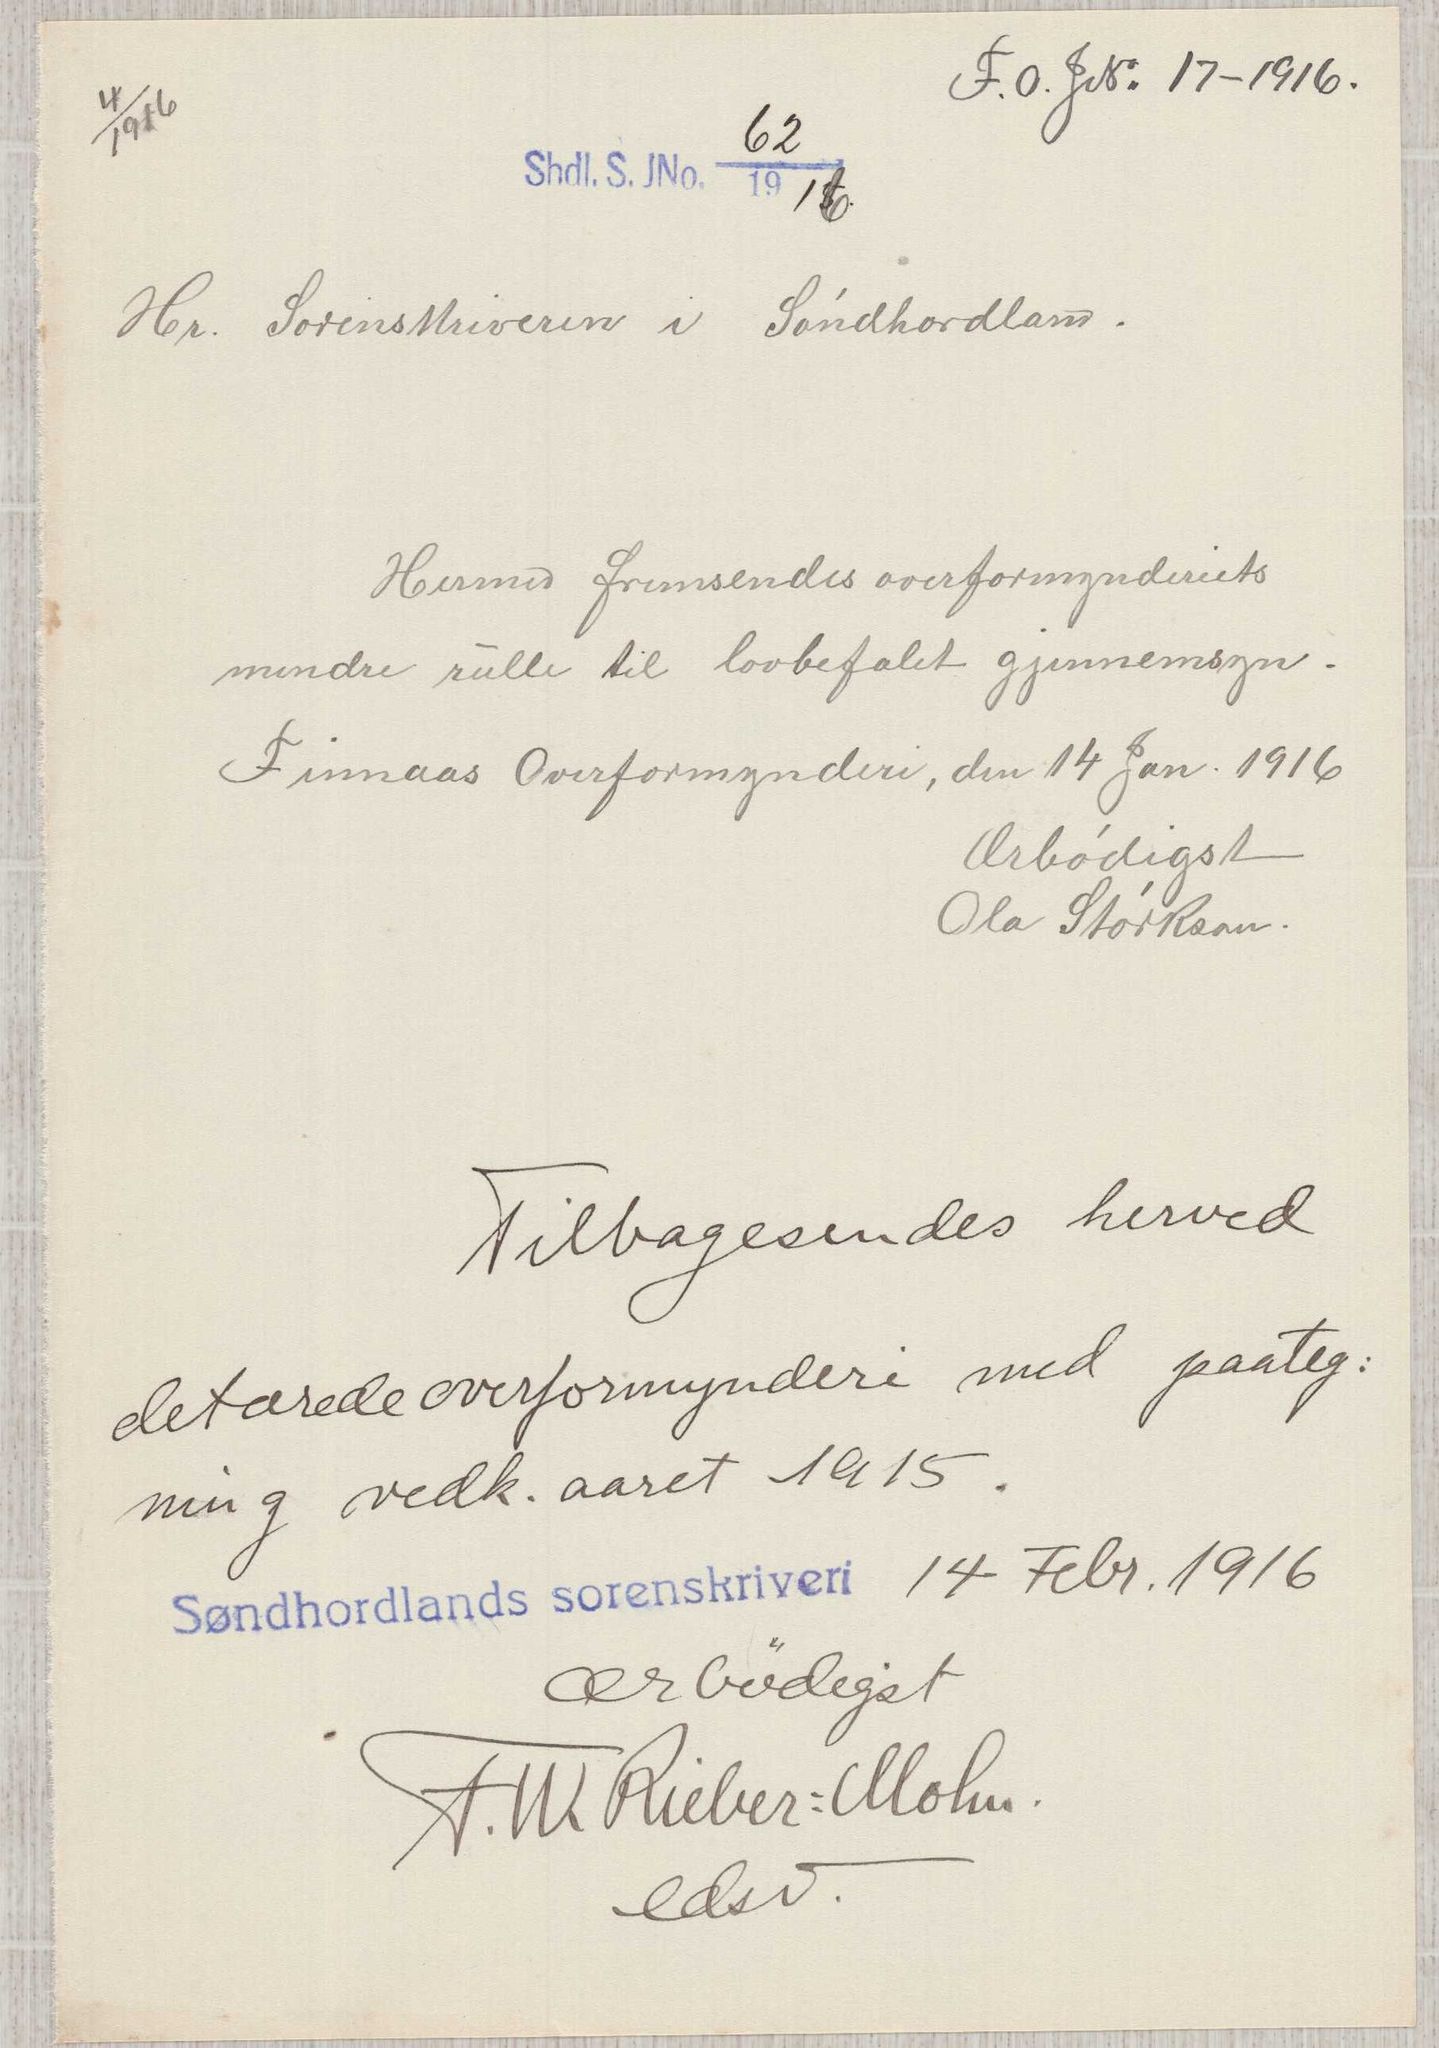 F.O. JNo: 17-1916.
4/1916
Shdl. S. JNo. 62/1916.
Hr. Sorenskriveren i Sóndhordland.
Hermed fremsendes overformynderiets
mindre rulle til lovbefalet gjennemsyn.
Finnaas Overformynderi, den 14 Jan. 1916
Ærbódigst
Ola Stórkson.
Tilbagesendes herved
det ærede overformynderi med paateg:
ning vedk. aaret 1915.
Søndhordlands sorenskriveri 14 Febr. 1916
ærbödigst
F.W. Rieber=Mohn.
edsv.